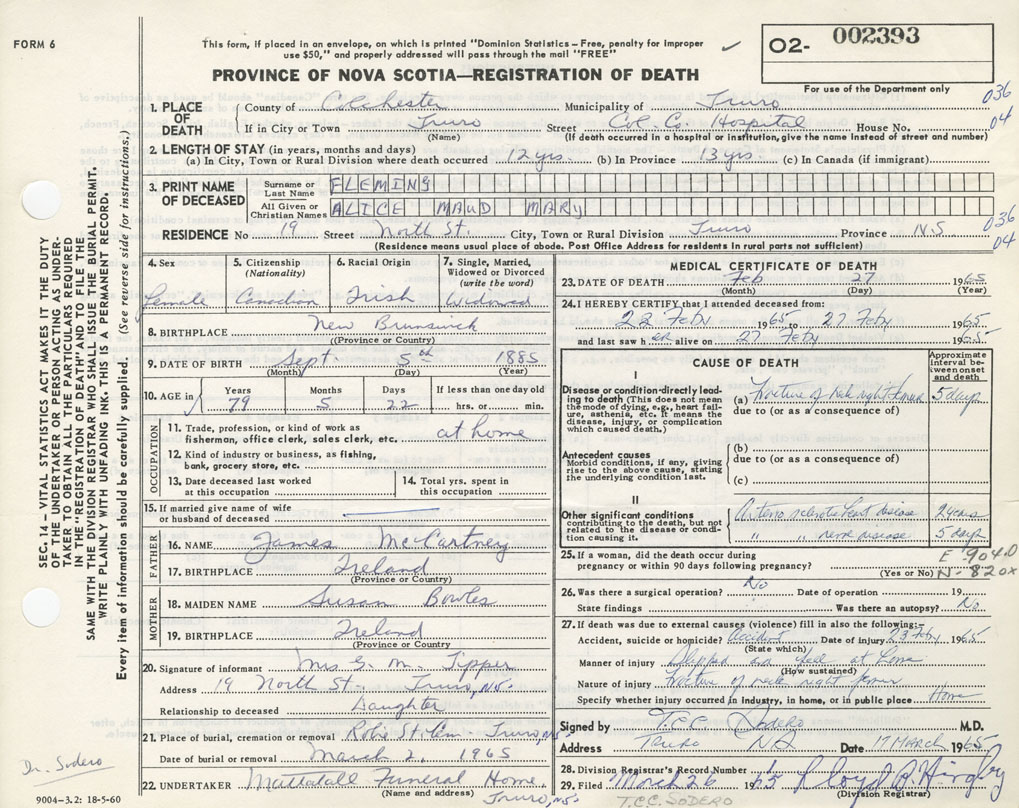 FORM 6
This form, if placed in an envelope, on which is printed "Dominion Statistics – Free, penalty for improper
use $50," and properly addressed will pass through the mail "FREE"
O2- 002393
PROVINCE OF NOVA SCOTIA—REGISTRATION OF DEATH
For use of the Department only
036
04
1. PLACE OF DEATH County of Colchester Municipality of Truro
If in City or Town Truro Street Col. Co. Hospital House No.
(Name) (If death occurred in a hospital or institution, give the name instead of street and number)
2. LENGTH OF STAY (in years, months and days)
(a) In City, Town or Rural Division where death occurred 12 yrs. (b) In Province 13 yrs. (c) In Canada (if immigrant)
3. PRINT NAME OF DECEASED Surname or Last Name FLEMING
All Given or Christian Names ALICE MAUD MARY
RESIDENCE No 19 Street North St. City, Town or Rural Division Truro Province N.S
036
04
(Residence means usual place of abode. Post Office Address for residents in rural parts not sufficient)
4. Sex 5. Citizenship (Nationality) 6. Racial Origin 7. Single, Married, Widowed or Divorced (write the word)
Female Canadian Irish Widowed
8. BIRTHPLACE New Brunswick
((Province or Country)
9. DATE OF BIRTH Sept. 5th 1885
(Month) (Day) (Year)
10. AGE in Years Months Days If less than one day old
79 5 22 hrs. or min.
OCCUPATION
11. Trade, profession, or kind of work as fisherman, office clerk, sales clerk, etc. at home
12. Kind of industry or business, as fishing, bank, grocery store, etc.
13. Date deceased last worked at this occupation
14. Total yrs. spent in this occupation
15. If married give name of wife or husband of deceased
FATHER
16. NAME James McCartney
17. BIRTHPLACE Ireland
(Province or Country)
MOTHER
18. MAIDEN NAME Susan Bowles
19. BIRTHPLACE Ireland
(Province or Country)
20. Signature of informant Mrs G. M. Tipper
Address 19 North St. Truro, N.S.
Relationship to deceased Daughter
21. Place of burial, cremation or removal Robie St. Cem. Truro, N.S.
Date of burial or removal March 2, 1965
22. UNDERTAKER Mattatall Funeral Home,
(Name and address) Truro, N.S.
MEDICAL CERTIFICATE OF DEATH
23. DATE OF DEATH Feb 27 1965
(Month) (Day) (Year)
24. I HEREBY CERTIFY that I attended deceased from:
22 Feby 1965 to 27 Feby 1965
and last saw her alive on 27 Feby 1965
CAUSE OF DEATH
Approximate interval between onset and death
I
Disease or condition directly leading to death (This does not mean the mode of dying, e.g., heart failure, asthenia, etc. It means the disease, injury, or complication which caused death.)
(a) Fracture of neck right femur 5 days
due to (or as a consequence of)
Antecedent causes
Morbid conditions, if any, giving rise to the above cause, stating the underlying condition last.
(b)
due to (or as a consequence of)
(c)
II
Other significant conditions contributing to the death, but not related to the disease or condition causing it.
Arterio sclerotic heart disease 2 years
" " disease 5 days
25. If a woman, did the death occur during pregnancy or within 90 days following pregnancy?
(Yes or No)
E 904.0
N- 820X
26. Was there a surgical operation? No Date of operation 19
State findings Was there an autopsy? No
27. If death was due to external causes (violence) fill in also the following:—
Accident, suicide or homicide? Accident Date of injury 23 Feby 1965
(State which)
Manner of injury Slipped and fell at home
(How sustained)
Nature of injury Fracture of neck right femur
Specify whether injury occurred in industry, in home, or in public place Home
Signed by T.C.C. Sodero M.D.
Address Truro NS Date 17 March 1965
28. Division Registrar's Record Number
29. Filed March 26 1965 Lloyd
(Division Registrar)
T.C.C. SODERO
SEC. 14 – VITAL STATISTICS ACT MAKES IT THE DUTY
OF THE UNDERTAKER OR PERSON ACTING AS UNDER-
TAKER TO OBTAIN ALL THE PARTICULARS REQUIRED
IN THE "REGISTRATION OF DEATH" AND TO FILE THE
SAME WITH THE DIVISION REGISTRAR WHO SHALL ISSUE THE BURIAL PERMIT.
WRITE PLAINLY WITH UNFADING INK. THIS IS A PERMANENT RECORD.
Every item of information should be carefully supplied. (See reverse side for instructions.)
Dr. Sodero
9004-3.2: 18-5-60